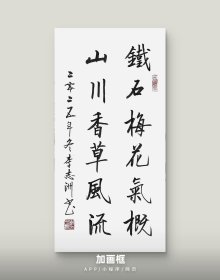 鐵石梅花氣概
山川香草風流
二零二五年冬李志洲书
加画框
APP/小程序/网页